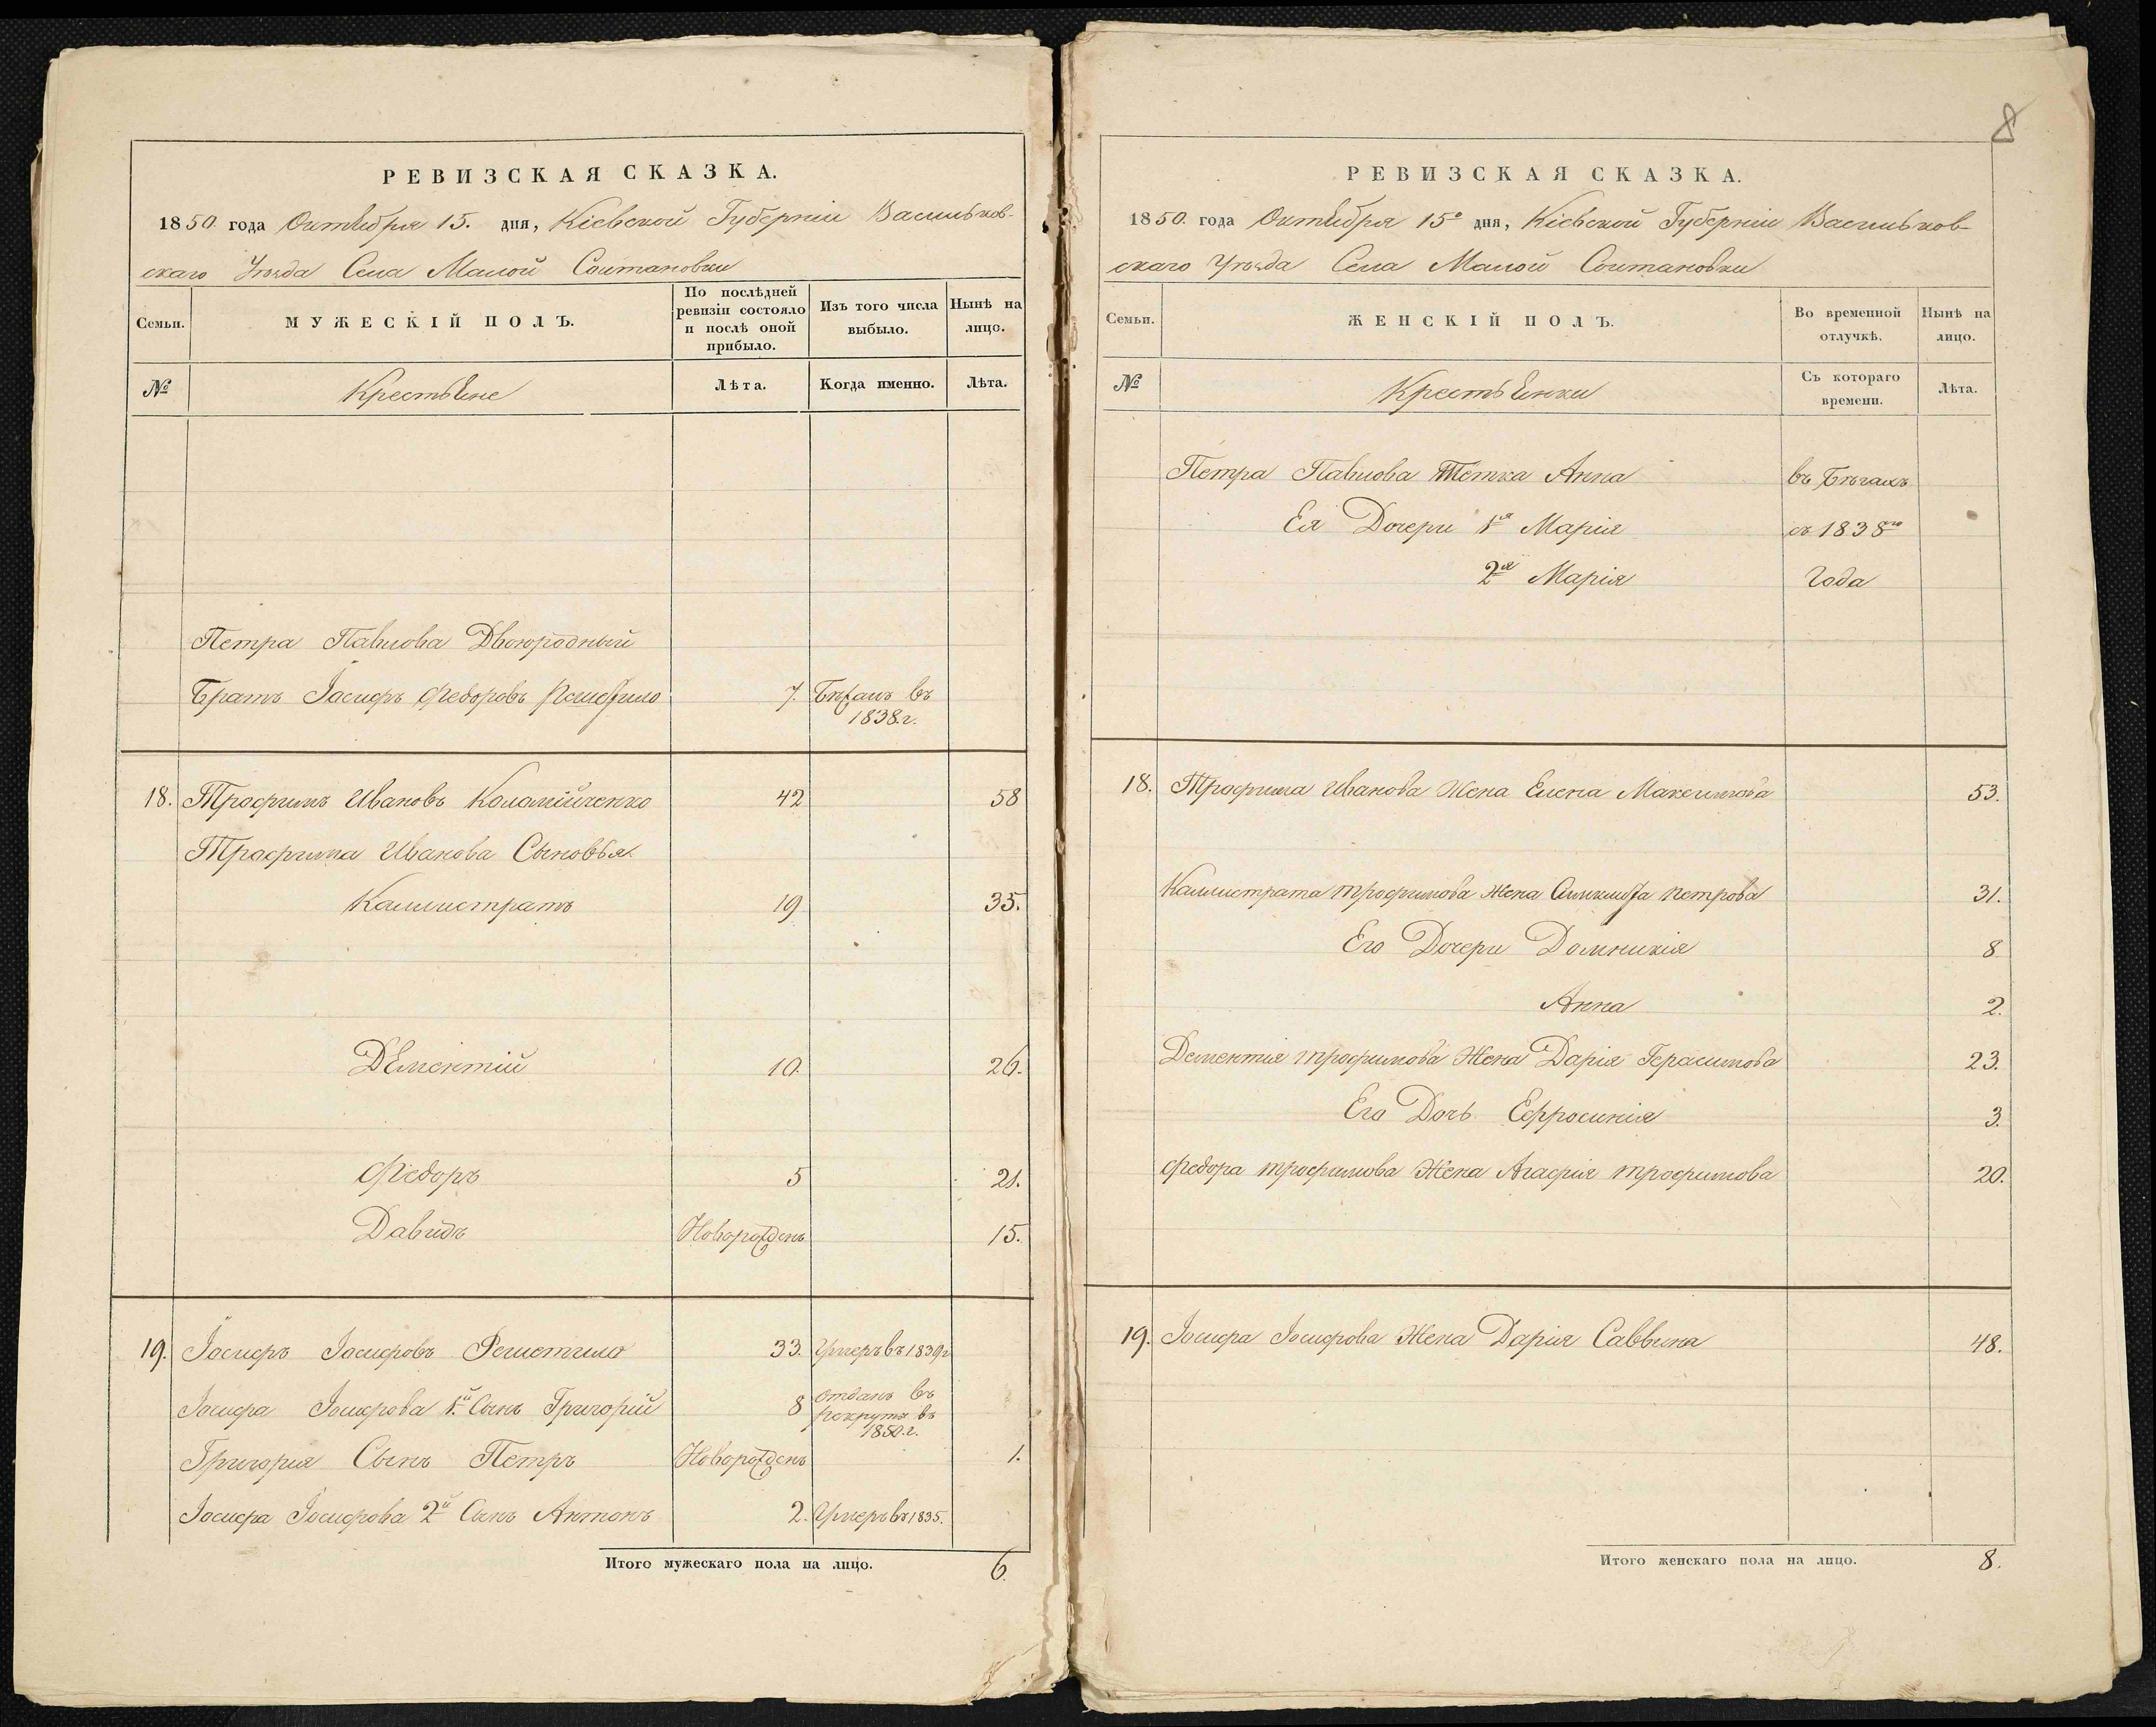 РЕВИЗСКАЯ СКАЗКА.
1850 года Октября 15. дня, Кіевской Губерніи Васильков-
скаго Уѣзда Села Малой Солтановки
Семьи.
МУЖЕСКІЙ ПОЛЪ.
По послѣдней
ревизіи состояло
и послѣ оной
прибыло.
Изъ того числа
выбыло.
Нынѣ на
лицо.
№
Крестьяне
Лѣта.
Когда именно.
Лѣта.
Петра Павлова Двоюродный
Братъ Іосифъ Федоровъ 7. Бѣжалъ въ
1838.г.
18. Трофимъ Ивановъ Коломійченко 42 58
Трофима Иванова Сыновья
Каллистратъ 19 35.
Дементій 10. 26.
Федоръ 5 21.
Давидъ Новорожденъ 15.
19. Іосифъ Іосифовъ 33. Умеръ въ 1839г
Іосифа Іосифова 1й Сынъ Григорій 8 отданъ въ
рекруты въ
1850.г.
Григорія Сынъ Петръ Новорожденъ 1.
Іосифа Іосифова 2й Сынъ Антонъ 2. Умеръ въ 1835.
Итого мужескаго пола на лицо. 6.
8
РЕВИЗСКАЯ СКАЗКА.
1850. года Октября 15о дня, Кіевской Губерніи Васильков-
скаго Уѣзда Села Малой Солтановки
Семьи.
ЖЕНСКІЙ ПОЛЪ.
Во временной
отлучкѣ.
Нынѣ на
лицо.
№
Крестьянки
Съ котораго
времени.
Лѣта.
Петра Павлова Тетка Анна въ Бѣгахъ
Ея Дочери 1я Марія съ 1838го
2я Марія Года
18. Трофима Иванова Жена Елена Максимова 53.
Каллистрата Трофимова Жена Петрова 31.
Его Дочери Домникія 8
Анна 2.
Дементія Трофимова Жена Дарія Герасимова 23.
Его Дочь Ефросинія 3.
Федора Трофимова Жена Агафія Трофимова 20.
19. Іосифа Іосифова Жена Дарія Саввина 48.
Итого женскаго пола на лицо. 8.